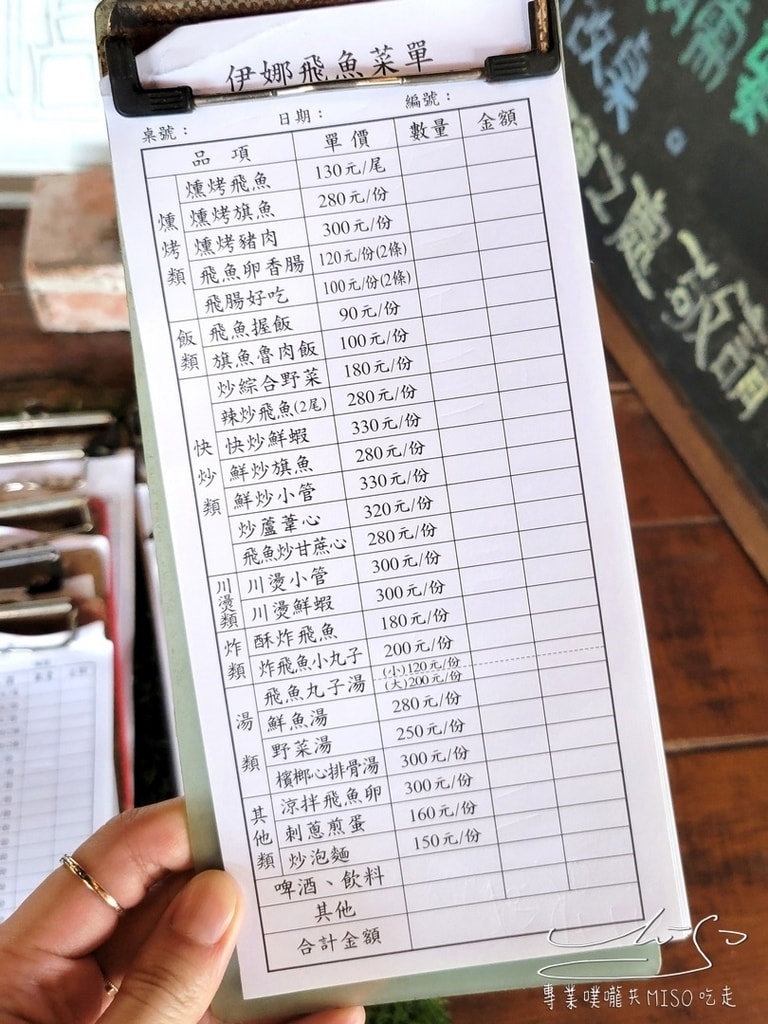 伊娜飛魚菜單
桌號： 日期： 編號：
品項 單價 數量 金額
燻烤類
燻烤飛魚 130元/尾
燻烤旗魚 280元/份
燻烤豬肉 300元/份
飛魚卵香腸 120元/份(2條)
飛腸好吃 100元/份(2條)
飯類
飛魚握飯 90元/份
旗魚魯肉飯 100元/份
快炒類
炒綜合野菜 180元/份
辣炒飛魚(2尾) 280元/份
快炒鮮蝦 330元/份
鮮炒旗魚 280元/份
鮮炒小管 330元/份
炒蘆葦心 320元/份
飛魚炒甘蔗心 280元/份
川燙類
川燙小管 300元/份
川燙鮮蝦 300元/份
炸類
酥炸飛魚 180元/份
炸飛魚小丸子 200元/份
湯類
飛魚丸子湯 (小)120元/份
(大)200元/份
鮮魚湯 280元/份
野菜湯 250元/份
檳榔心排骨湯 300元/份
其他類
涼拌飛魚卵 300元/份
刺蔥煎蛋 160元/份
炒泡麵 150元/份
啤酒、飲料
其他
合計金額
需
改桌
之處敬請
MISO
專業噗嚨共MISO吃走